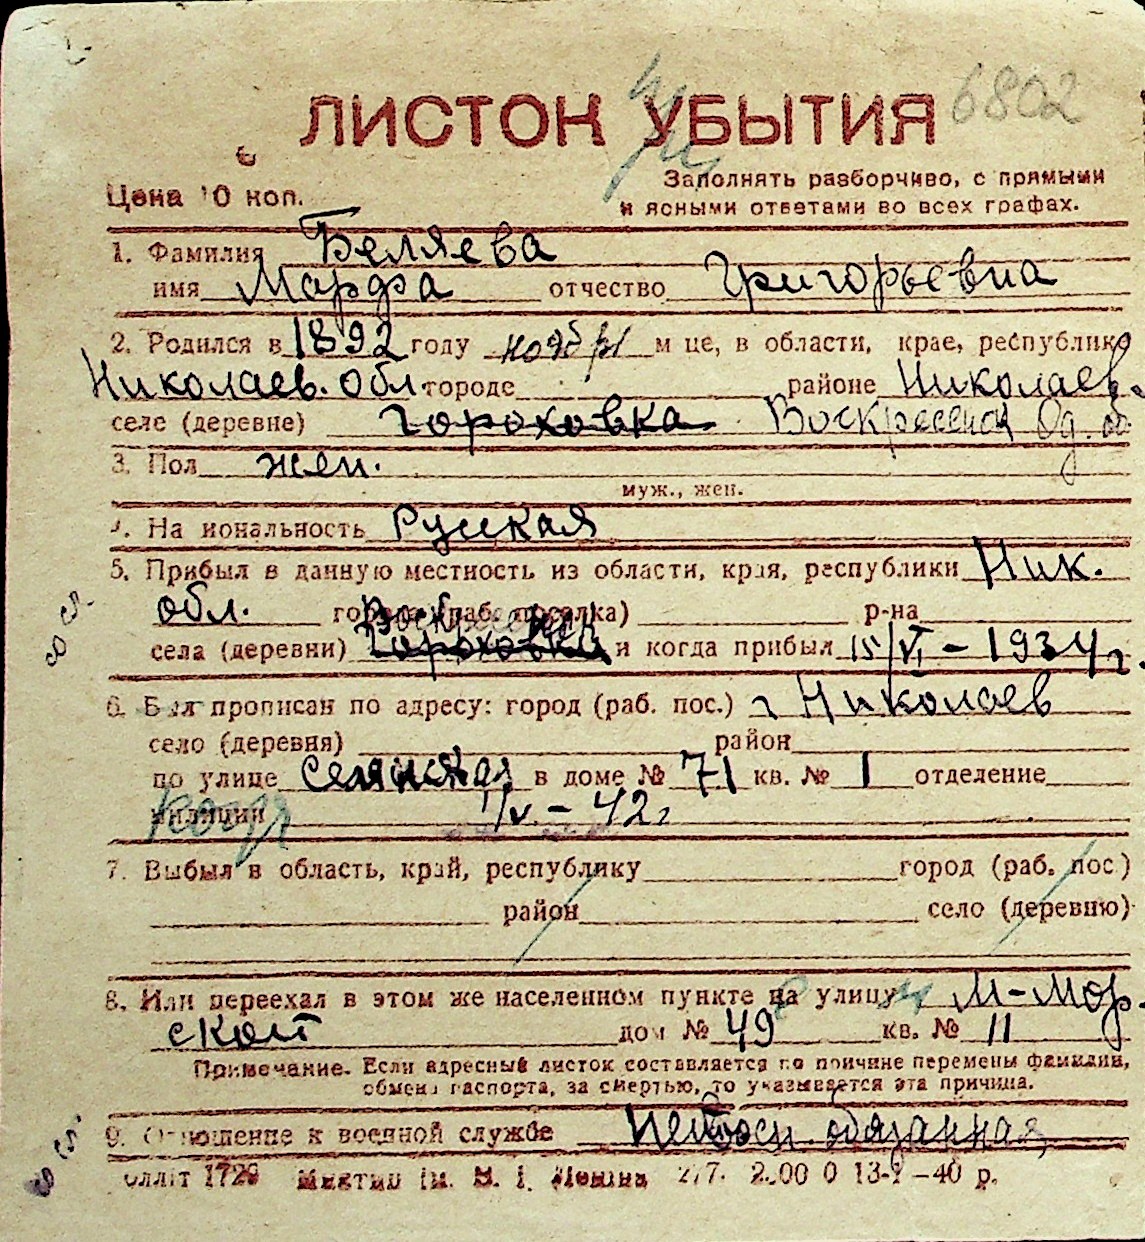 6802
ЛИСТОК УБЫТИЯ
Цена 10 коп.
Заполнять разборчиво, с прямыми
и ясными ответами во всех графах.
1. Фамилия Беляева
имя Марфа отчество Григорьевна
2. Родился в 1892 году ноябрь м це, в области, крае, республике
Николаев. обл городе районе Николаев.
селе (деревне) Гороховка Воскресенск Од. об
3. Пол жен.
муж., жен.
4. На иональность Русская
5. Прибыл в данную местность из области, края, республики Ник.
обл. города (раб. поселка) р-на
села (деревни) Гороховка и когда прибыл 15/VI - 1934 г.
6. Был прописан по адресу: город (раб. пос.) г Николаев
село (деревня) район
по улице в доме № 71 кв. № 1 отделение
милиции 1/V. - 42 г
7. Выбыл в область, край, республику город (раб. пос.)
район село (деревню)
8. Или переехал в этом же населенном пункте на улицу М-Мор.
ской дом № 49 кв. № 11
Примечание. Если адресный листок составляется по причине перемены фамилии,
обмена паспорта, за смертью, то указывается эта причина.
9. Отношение к военной службе обязанная
1729 ім. В. І. Леніна 2/7. 13-40 р.